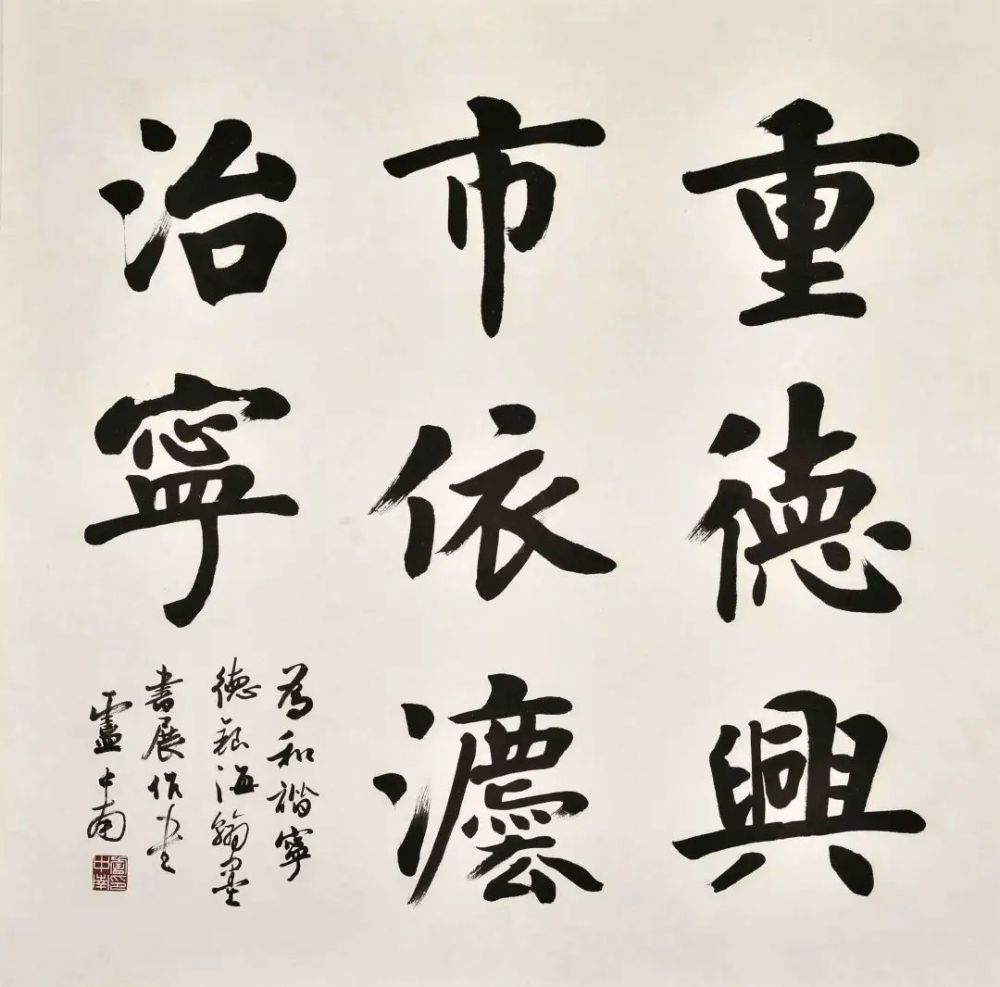 重德興
市依灋
治寧
為和諧寧
德海翰墨
書展作
盧中南
盧印中南